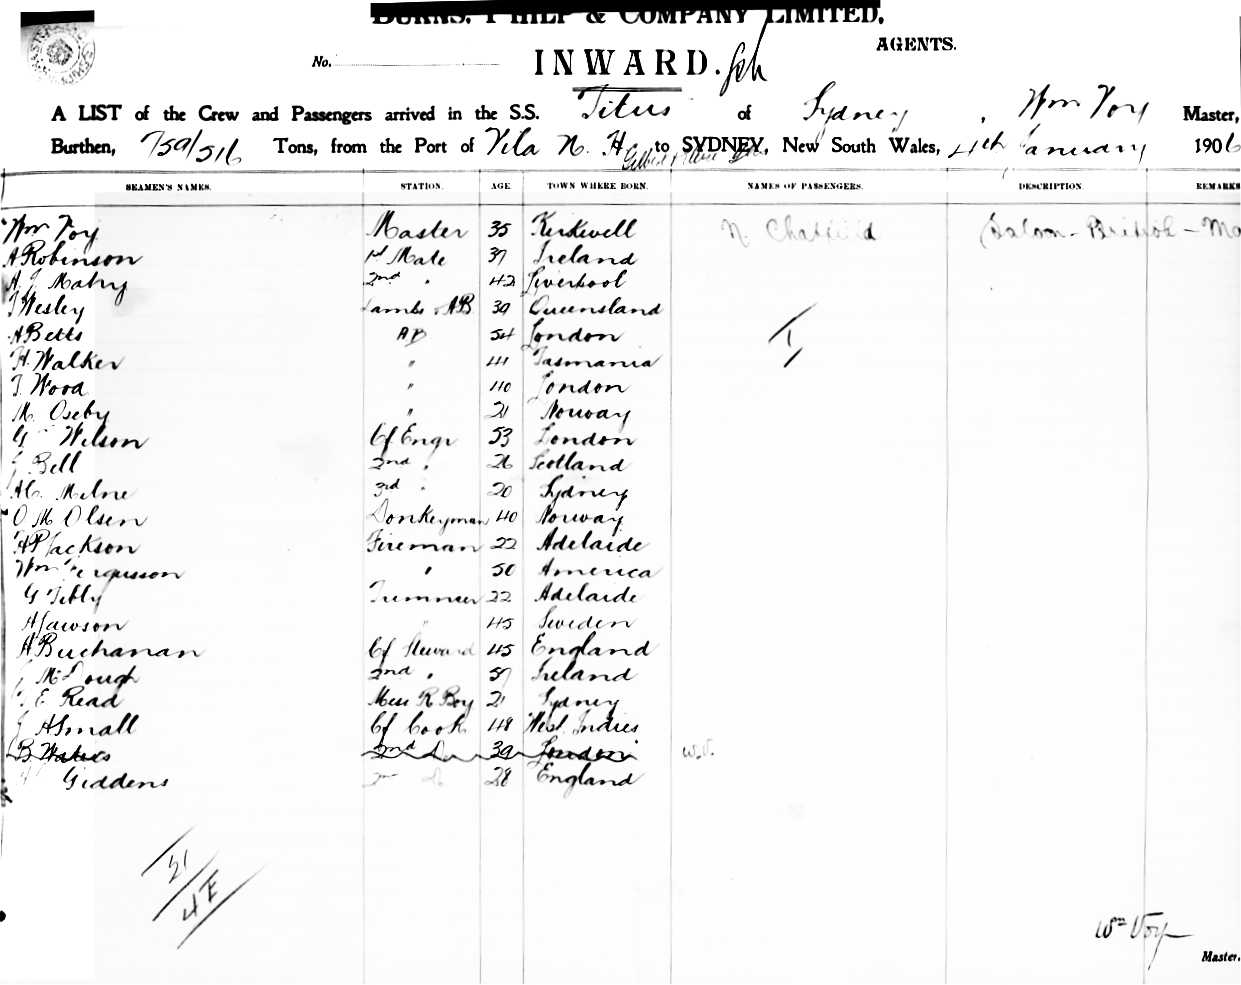 BURNS, PHILP & COMPANY LIMITED,
AGENTS.
No. INWARD.
A LIST of the Crew and Passengers arrived in the S.S. Titus of Sydney, Wm Voy Master,
Burthen, 759/516 Tons, from the Port of Vila N. H. to SYDNEY, New South Wales, 4th January 1906
SEAMEN'S NAMES. STATION. AGE TOWN WHERE BORN. NAMES OF PASSENGERS. DESCRIPTION REMARKS
Wm Voy Master 35 Kirkwell N. Chatfield Saloon - British - Ma
A Robinson 1st Mate 37 Ireland
2nd " 42 Liverpool
T Wesley Lamps & AB 39 Queensland
A Betts AB 54 London
H. Walker " 41 Tasmania
T. Wood " 40 London
M. Oseby " 21 Norway
G Wilson Cf Engr 53 London
J Bell 2nd " 26 Scotland
A C. Milne 3rd " 20 Sydney
O M Olsen Donkeyman 40 Norway
H P Jackson Fireman 22 Adelaide
Wm Fergusson " 50 America
G Tibby Trimmer 22 Adelaide
A Lawson " 45 Sweden
A Buchanan Cf Steward 45 England
J McDough 2nd " 57 Ireland
E Read Mess R Boy 21 Sydney
J A Small Cf Cook 48 West Indies
B 2nd Do 39 London W.V.
Giddens 2nd Do 28 England
1
21
4E
Wm Voy
Master.